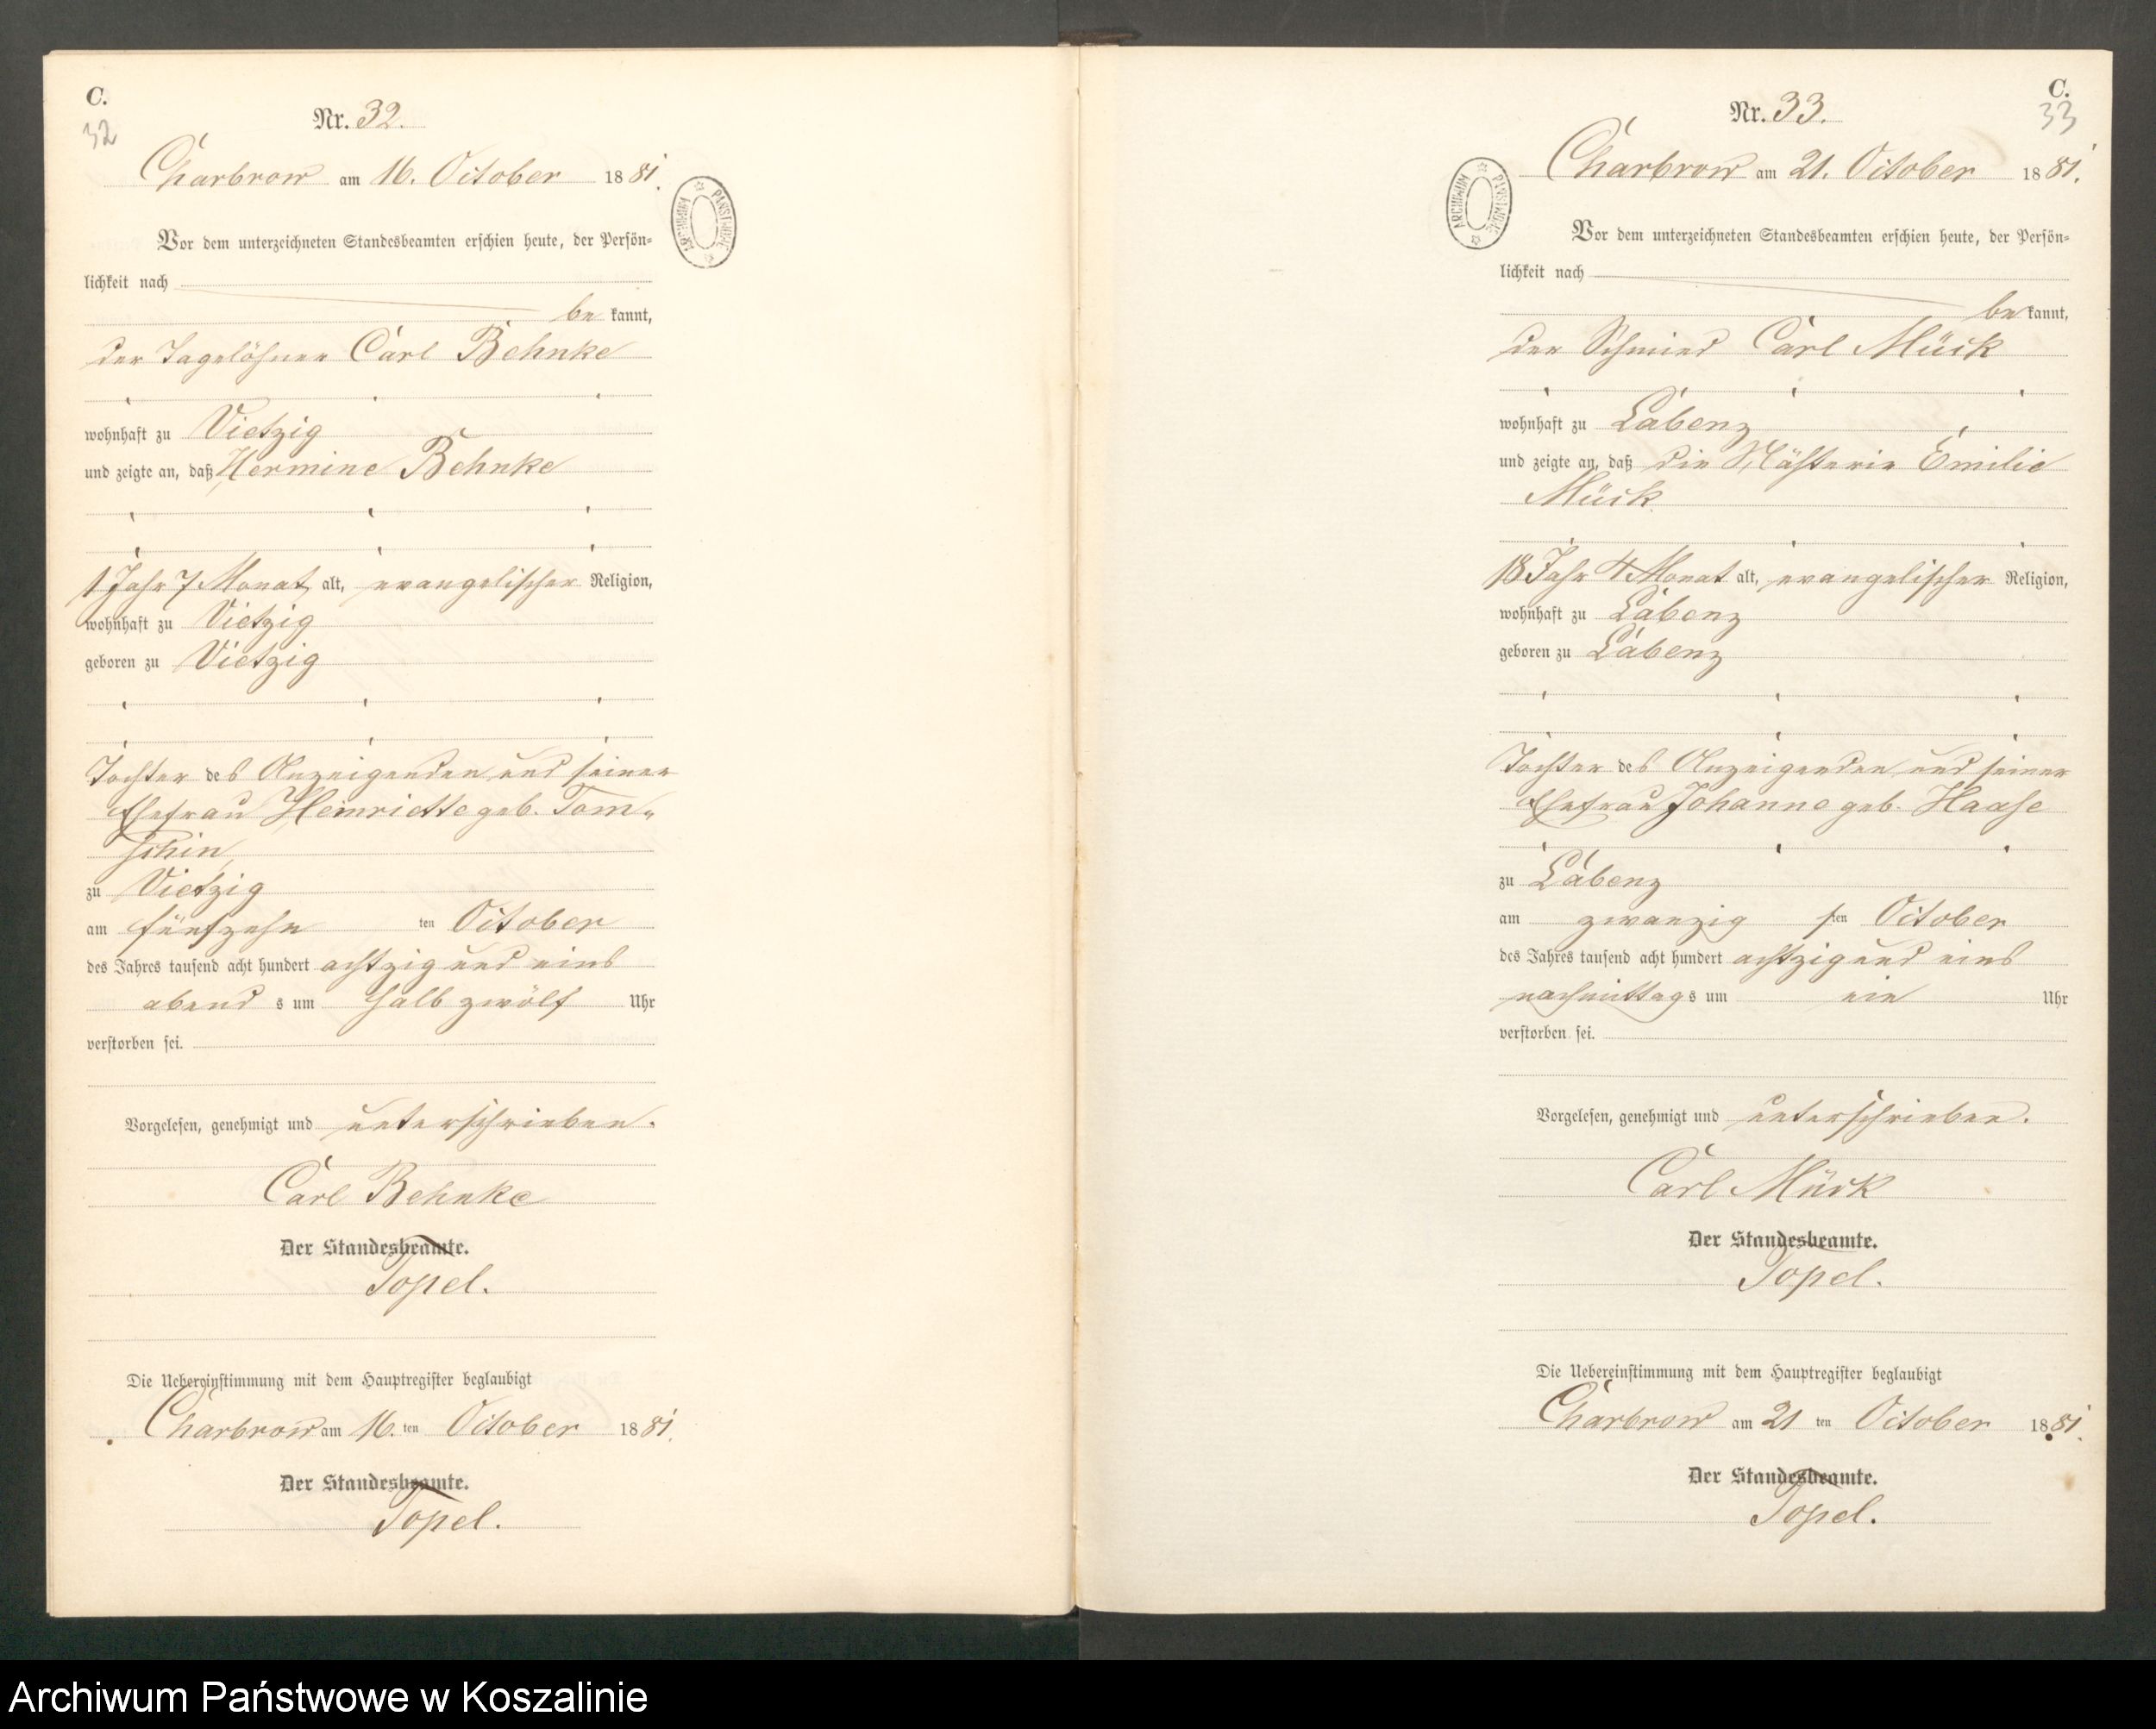 C.
32
Nr. 32.
Charbrow am 16. October 1881.
ARCHIWUM PAŃSTWOWE
Vor dem unterzeichneten Standesbeamten erschien heute, der Persön=
lichkeit nach
be kannt,
der Tagelöhner Carl Behnke
wohnhaft zu Vietzig
und zeigte an, daß Hermine Behnke
1 Jahr 7 Monat alt, evangelischer Religion,
wohnhaft zu Vietzig
geboren zu Vietzig
Tochter des Anzeigenden und seiner
Ehefrau Heinriette geb. Tom=
schin,
zu Vietzig
am fünfzehn ten October
des Jahres tausend acht hundert achtzig und eins
abend s um halb zwölf Uhr
verstorben sei.
Vorgelesen, genehmigt und unterschrieben.
Carl Behnke
Der Standesbeamte.
Topel.
Die Uebereinstimmung mit dem Hauptregister beglaubigt
Charbrow am 16. ten October 1881.
Der Standesbeamte.
Topel.
C.
33
Nr. 33.
Charbrow am 21. October 1881.
ARCHIWUM PAŃSTWOWE
Vor dem unterzeichneten Standesbeamten erschien heute, der Persön=
lichkeit nach
be kannt,
der Schmied Carl Mück
wohnhaft zu Labenz
und zeigte an, daß die Emilie
Mück
18 Jahr 4 Monat alt, evangelischer Religion,
wohnhaft zu Labenz
geboren zu Labenz
Tochter des Anzeigenden und seiner
Ehefrau Johanne geb. Haase
zu Labenz
am zwanzig sten October
des Jahres tausend acht hundert achtzig und eins
nachmittags um ein Uhr
verstorben sei.
Vorgelesen, genehmigt und unterschrieben.
Carl Mück
Der Standesbeamte.
Topel.
Die Uebereinstimmung mit dem Hauptregister beglaubigt
Charbrow am 21 ten October 1881.
Der Standesbeamte.
Topel.
Archiwum Państwowe w Koszalinie